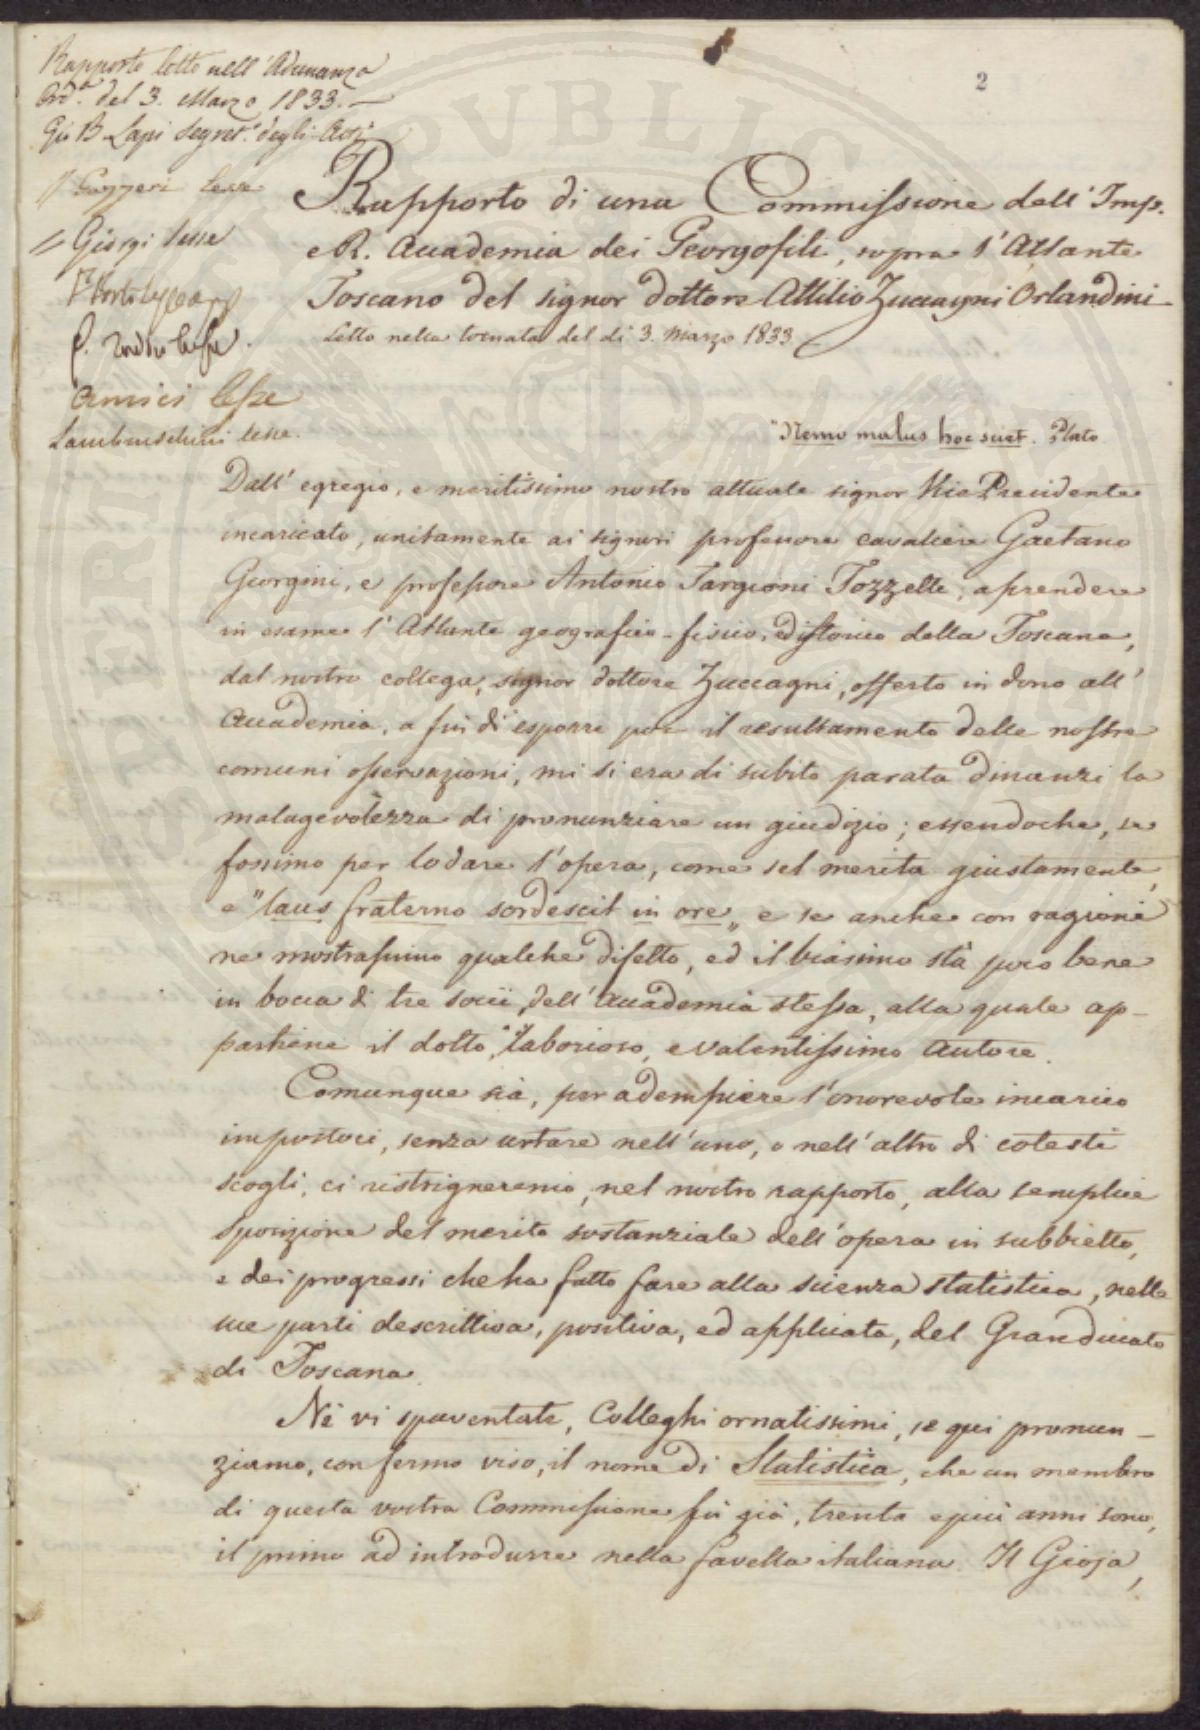 2
Rapporto letto nell'Adunanza
Ord.a del 3. Marzo 1833.
Gio B. Lapi Segret.o degli Atti
Gazzeri lesse
Giorgi lesse
lesse
Amici lesse
Lambruschini lesse.
Rapporto di una Commissione dell'Imp.
e R. Accademia dei Georgofili, sopra l'Atlante
Toscano del signor dottore Attilio Zuccagni Orlandini
Letto nella tornata del di 3. Marzo 1833
"Nemo malus hoc sciet. Plato.
Dall'egregio, e meritissimo nostro attuale signor Vice Presidente
incaricato, unitamente ai signori professore cavaliere Gaetano
Georgini, e professore Antonio Targioni Tozzetti, a prendere
in esame l'Atlante geografico-fisico, ed istorico della Toscana,
dal nostro collega, signor dottore Zuccagni, offerto in dono all'
Accademia, a fin di esporre poi il resultamento delle nostre
comuni osservazioni, mi si era di subito parata dinanzi la
malagevolezza di pronunziare un giudizio; essendochè, se
fossimo per lodare l'opera, come sel merita giustamente,
e "laus fraterno sordescit in ore„ e se anche con ragione
ne mostrassimo qualche difetto, ed il biasimo stà poco bene
in bocca di tre socii dell'Accademia stessa, alla quale ap-
partiene il dotto, laborioso, e valentissimo autore.
Comunque sia, per adempiere l'onorevole incarico
impostoci, senza urtare nell'uno, o nell'altro di cotesti
scogli, ci ristrigneremo, nel nostro rapporto, alla semplice
sposizione del merito sostanziale dell'opera in subbietto,
e dei progressi che ha fatto fare alla scienza statistica, nelle
sue parti descrittiva, positiva, ed applicata, del Granducato
di Toscana.
Nè vi spaventate, Colleghi ornatissimi, se qui pronun-
ziamo, con fermo viso, il nome di Statistica, che un membro
di questa vostra Commissione fù già, trenta e più anni sono,
il primo ad introdurre nella favella italiana. Il Gioja,